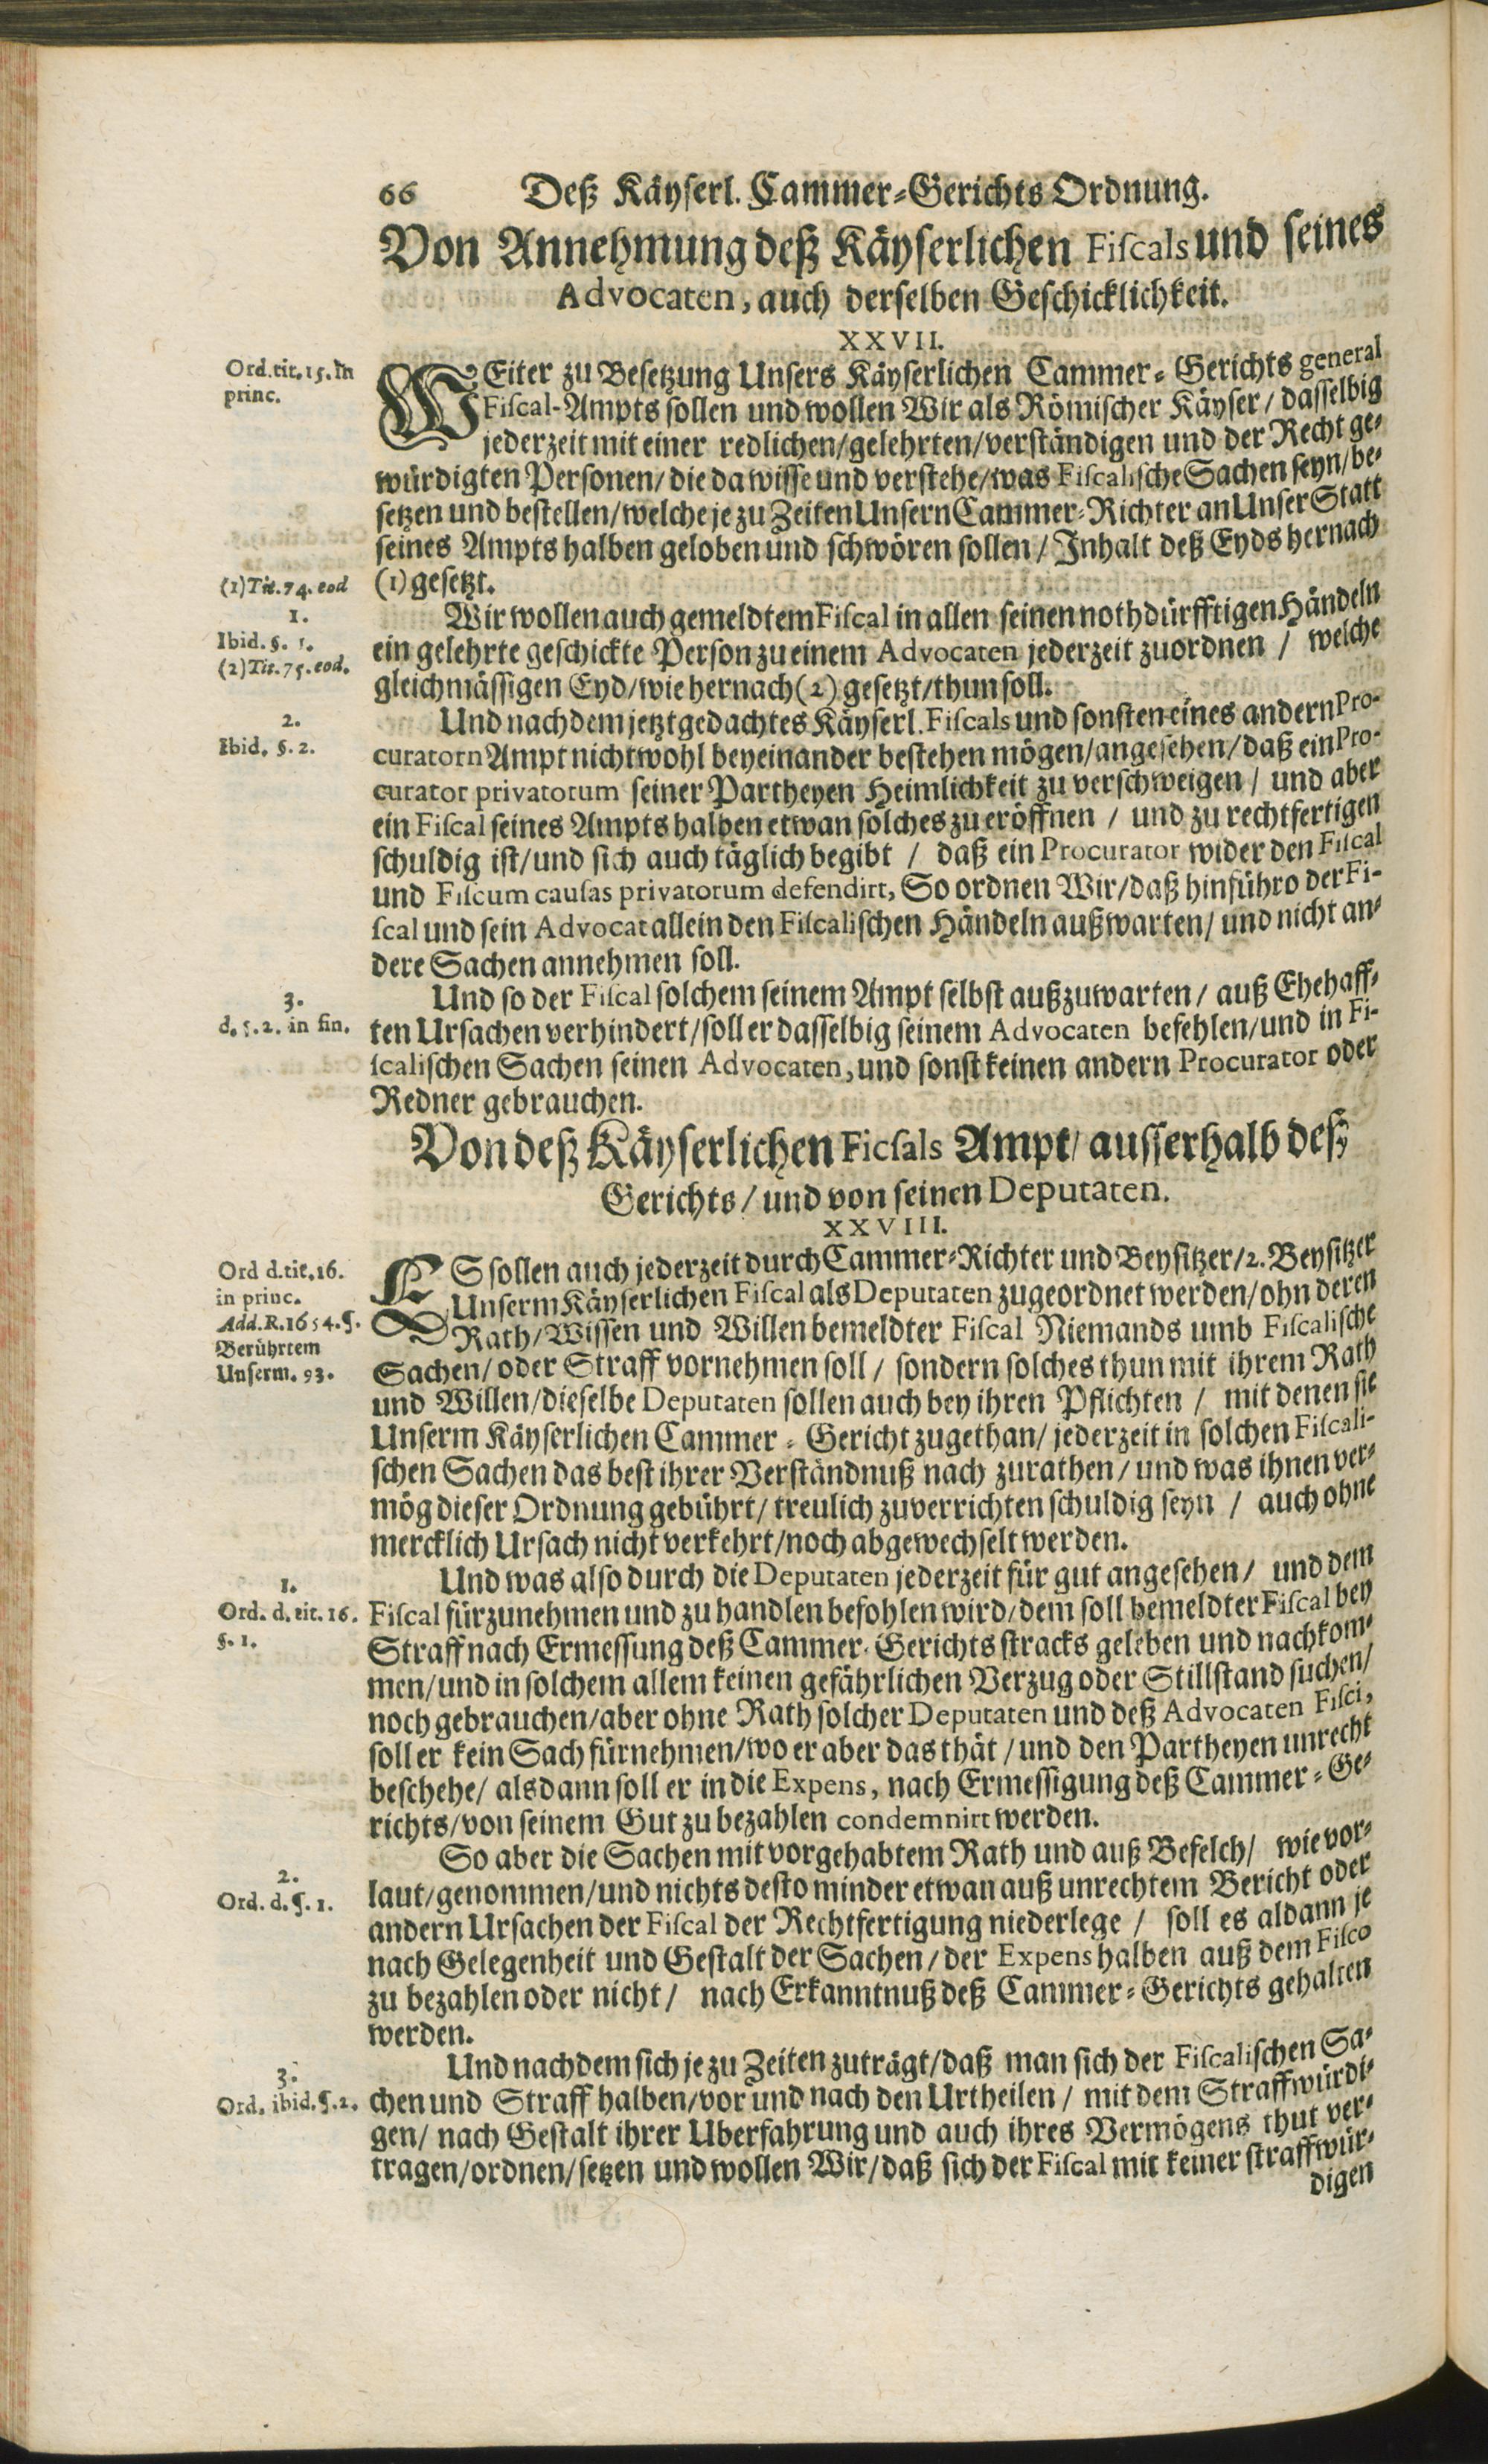 66 Deß Käyserl. Cammer-Gerichts Ordnung.
Von Annehmung deß Käyserlichen Fiscals und seines
Advocaten, auch derselben Geschicklichkeit.
XXVII.
Ord. tit. 15. in
princ.
WEiter zu Besetzung Unsers Käyserlichen Cammer-Gerichts general
Fiscal-Ampts sollen und wollen Wir als Römischer Käyser / dasselbig
jederzeit mit einer redlichen / gelehrten / verständigen und der Recht ge-
würdigten Personen / die da wisse und verstehe / was Fiscalische Sachen seyn / be-
setzen und bestellen / welche je zu Zeiten Unsern Cammer-Richter an Unser Statt
seines Ampts halben geloben und schwören sollen / Inhalt deß Eyds hernach
(1) Tit. 74. eod
(1) gesetzt.
1.
Ibid. §. 1.
(2) Tit. 75. eod.
Wir wollen auch gemeldtem Fiscal in allen seinen nothdürfftigen Händeln
ein gelehrte geschickte Person zu einem Advocaten jederzeit zuordnen / welche
gleichmässigen Eyd / wie hernach (2) gesetzt / thun soll.
2.
Ibid. §. 2.
Und nachdem jetztgedachtes Käyserl. Fiscals und sonsten eines andern Pro-
curatorn Ampt nicht wohl beyeinander bestehen mögen / angesehen / daß ein Pro-
curator privatorum seiner Partheyen Heimlichkeit zu verschweigen / und aber
ein Fiscal seines Ampts halben etwan solches zu eröffnen / und zu rechtfertigen
schuldig ist / und sich auch täglich begibt / daß ein Procurator wider den Fiscal
und Fiscum causas privatorum defendirt, So ordnen Wir / daß hinführo der Fi-
scal und sein Advocat allein den Fiscalischen Händeln außwarten / und nicht an-
dere Sachen annehmen soll.
3.
d. §. 2. in fin.
Und so der Fiscal solchem seinem Ampt selbst außzuwarten / auß Ehehaff-
ten Ursachen verhindert / soll er dasselbig seinem Advocaten befehlen / und in Fi-
scalischen Sachen seinen Advocaten, und sonst keinen andern Procurator oder
Redner gebrauchen.
Von deß Käyserlichen Ficsals Ampt / ausserhalb deß
Gerichts / und von seinen Deputaten.
XXVIII.
Ord d. tit. 16.
in princ.
Add. R. 1654. §.
Berührtem
Unserm. 93.
ES sollen auch jederzeit durch Cammer-Richter und Beysitzer / 2. Beysitzer
Unserm Käyserlichen Fiscal als Deputaten zugeordnet werden / ohn deren
Rath / Wissen und Willen bemeldter Fiscal Niemands umb Fiscalische
Sachen / oder Straff vornehmen soll / sondern solches thun mit ihrem Rath
und Willen / dieselbe Deputaten sollen auch bey ihren Pflichten / mit denen sie
Unserm Käyserlichen Cammer-Gericht zugethan / jederzeit in solchen Fiscali-
schen Sachen das best ihrer Verständnuß nach zurathen / und was ihnen ver-
mög dieser Ordnung gebührt / treulich zuverrichten schuldig seyn / auch ohne
mercklich Ursach nicht verkehrt / noch abgewechselt werden.
1.
Ord. d. tit. 16.
§. 1.
Und was also durch die Deputaten jederzeit für gut angesehen / und dem
Fiscal fürzunehmen und zu handlen befohlen wird / dem soll bemeldter Fiscal bey
Straff nach Ermessung deß Cammer-Gerichts stracks geleben und nachkom-
men / und in solchem allem keinen gefährlichen Verzug oder Stillstand suchen /
noch gebrauchen / aber ohne Rath solcher Deputaten und deß Advocaten Fisci,
soll er kein Sach fürnehmen / wo er aber das thät / und den Partheyen unrecht
beschehe / alsdann soll er in die Expens, nach Ermessigung deß Cammer-Ge-
richts / von seinem Gut zu bezahlen condemnirt werden.
2.
Ord. d. §. 1.
So aber die Sachen mit vorgehabtem Rath und auß Befelch / wie vor-
laut / genommen / und nichts desto minder etwan auß unrechtem Bericht oder
andern Ursachen der Fiscal der Rechtfertigung niederlege / soll es aldann je
nach Gelegenheit und Gestalt der Sachen / der Expens halben auß dem Fisco
zu bezahlen oder nicht / nach Erkanntnuß deß Cammer-Gerichts gehalten
werden.
3.
Ord. ibid. §. 2.
Und nachdem sich je zu Zeiten zuträgt / daß man sich der Fiscalischen Sa-
chen und Straff halben / vor und nach den Urtheilen / mit dem Straffwürdi-
gen / nach Gestalt ihrer Uberfahrung und auch ihres Vermögens thut ver-
tragen / ordnen / setzen und wollen Wir / daß sich der Fiscal mit keiner straffwür-
digen